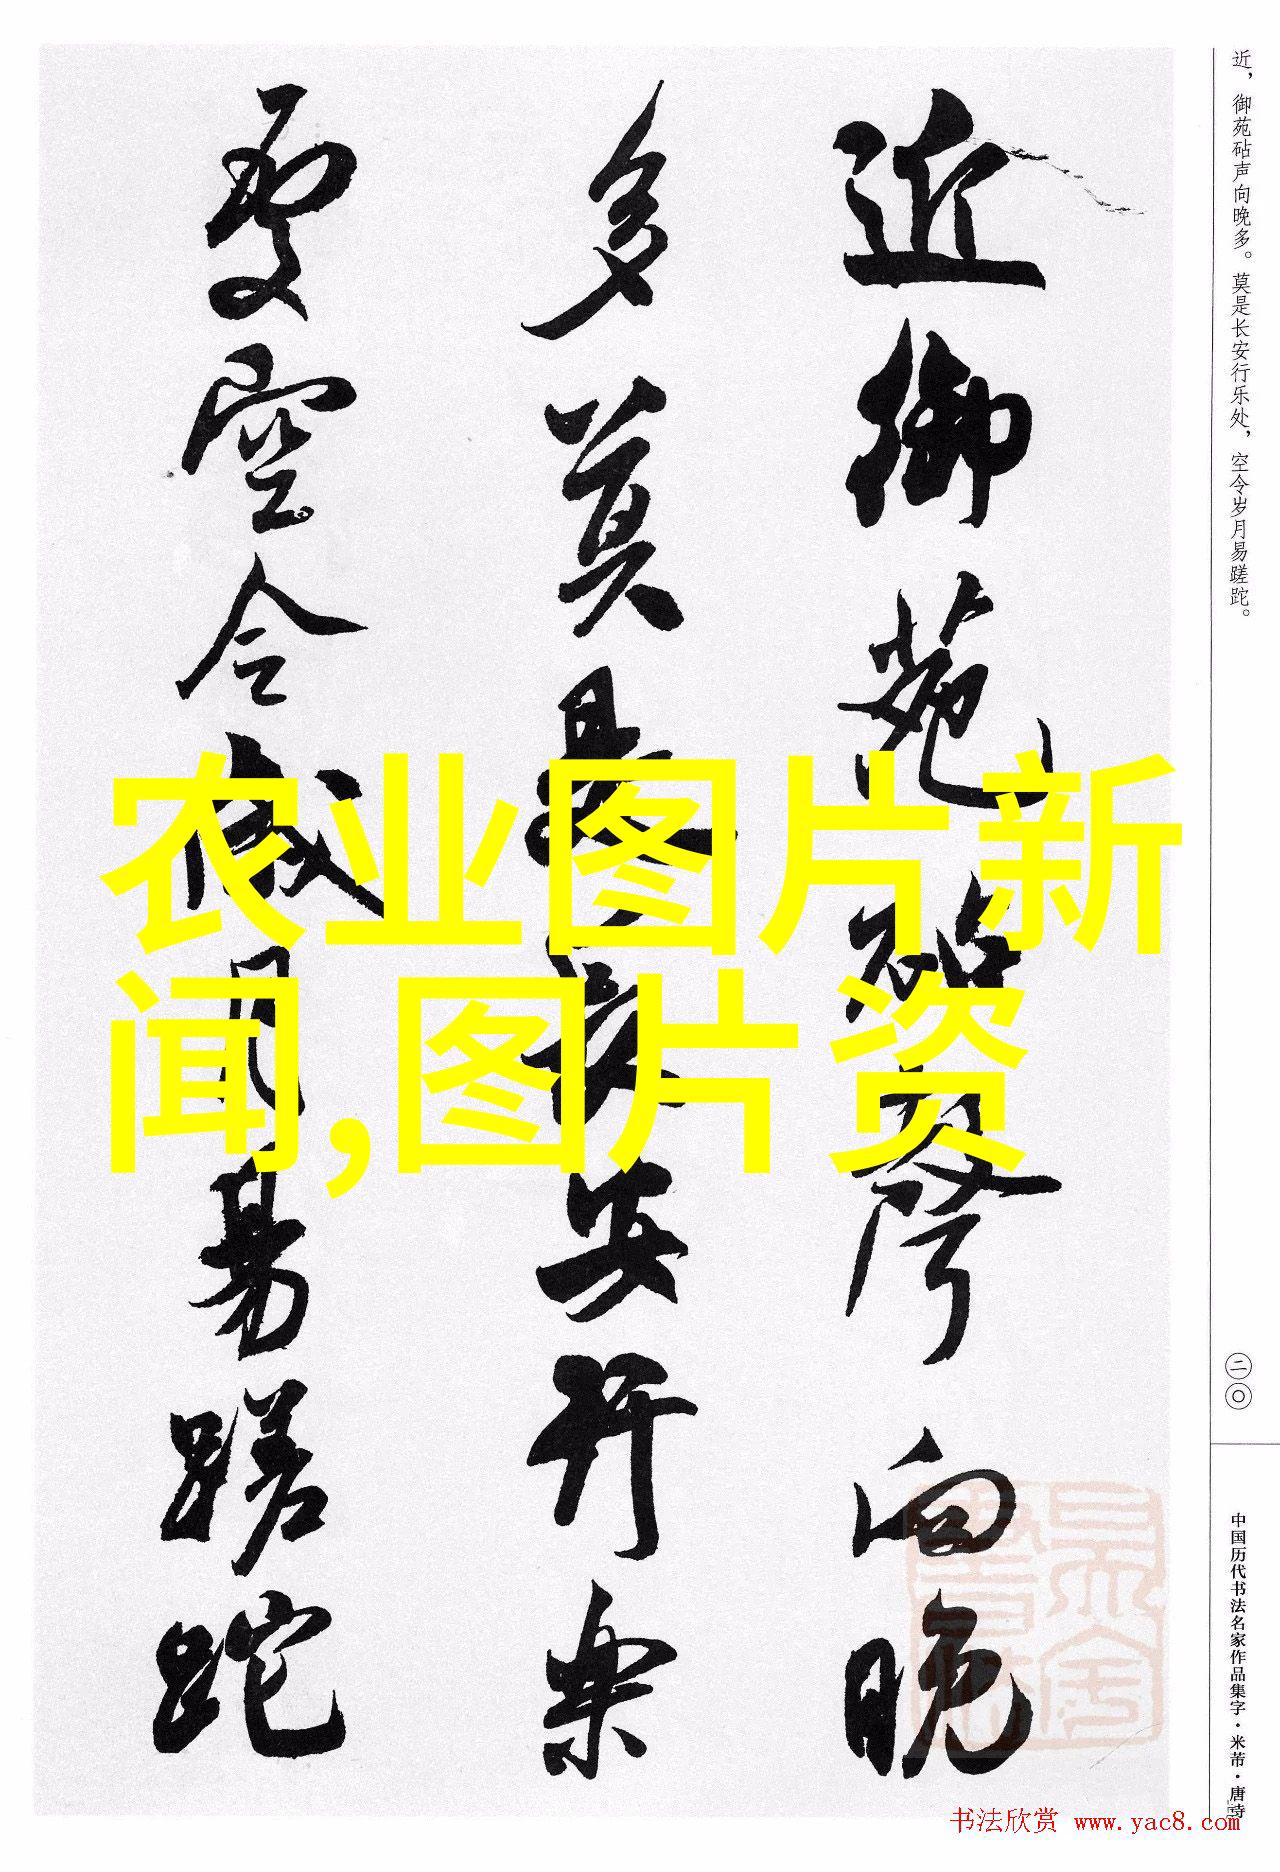 近御苑砧声向晚
多莫是长安行乐
处空令岁月易蹉跎
近，御苑砧声向晚多。莫是长安行乐处，空令岁月易蹉跎。
二〇
中国历代书法名家作品集字·米芾·唐诗
农业图片新
闻,图片资
书法欣赏 www.yac8.com